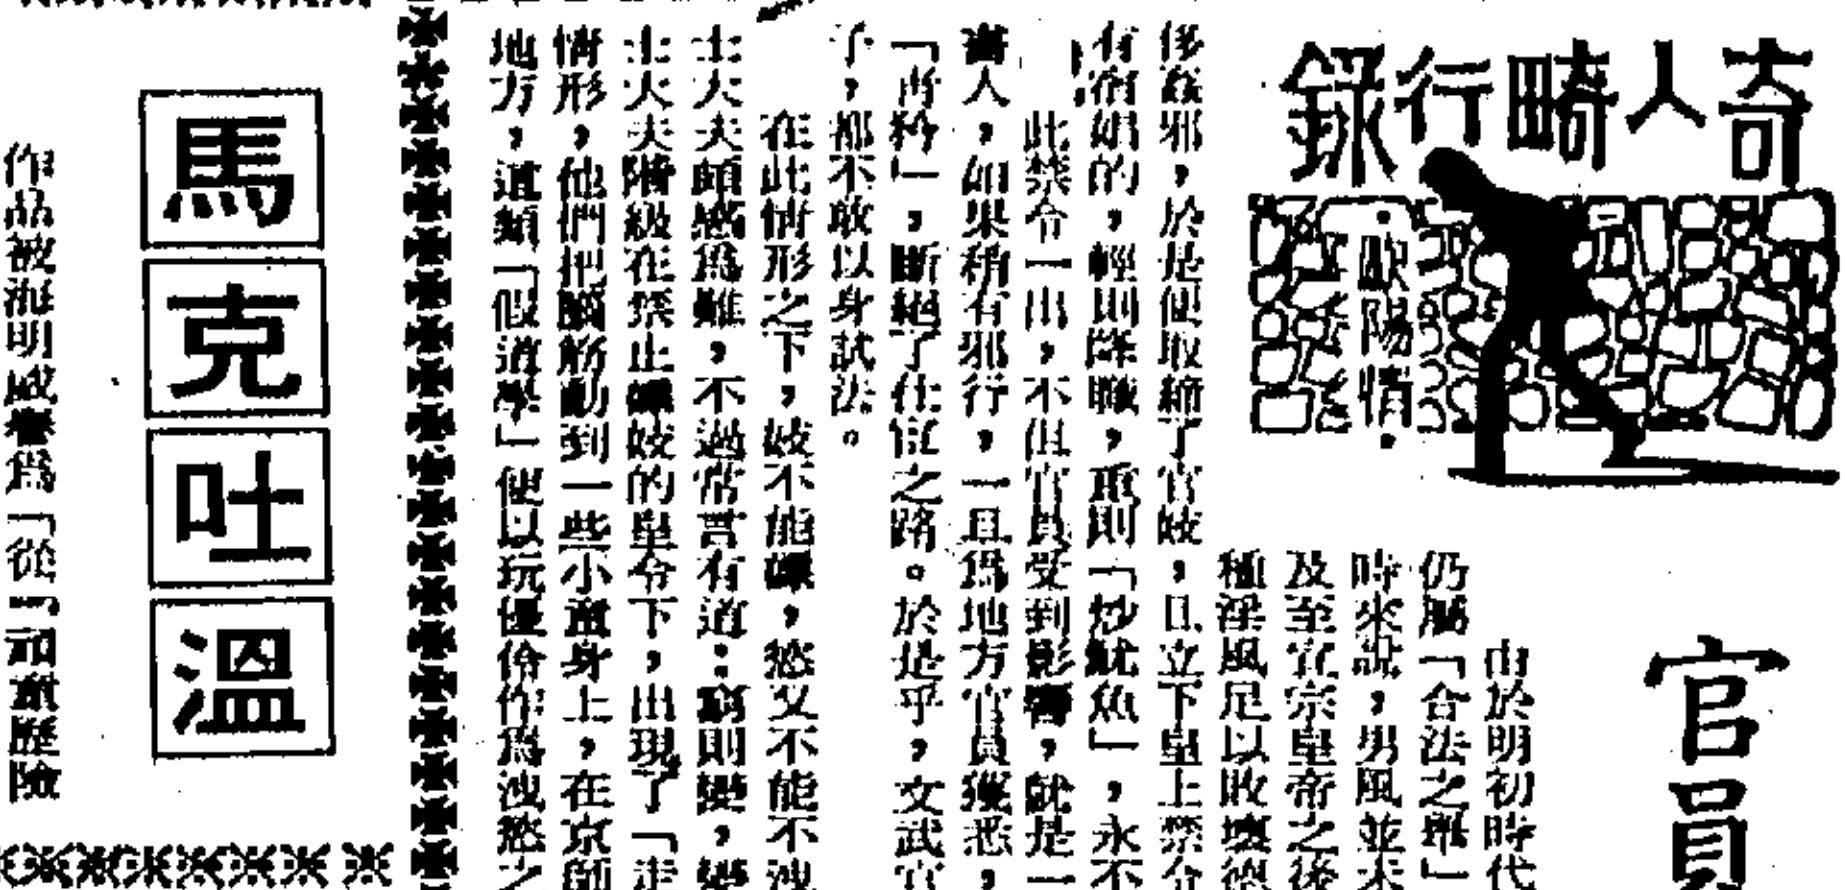 奇人畸行錄
•歐陽情•
官員
由於明初時代
仍屬「合法之舉」
時來說，男風並未
及至宣宗皇帝之後
種淫風足以敗壞德
侈姦邪，於是便取締了官妓，且立下皇上禁令
有宿娼的，輕則降職，重則「炒魷魚」，永不
此禁令一出，不但官員受到影響，就是一
書人，如果稍有邪行，一旦爲地方官員獲悉，
「青矜」，斷絕了仕宦之路。於是乎，文武官
子，都不敢以身試法。
在此情形之下，妓不能嫖，慾又不能不洩
士大夫頗感爲難，不過常言有道：窮則變，變
士大夫階級在禁止嫖妓的皇令下，出現了「走
情形，他們把腦筋動到一些小童身上，在京師
地方，這類「假道學」便以玩優伶作爲洩慾之
馬克吐溫
作品被海明威譽爲「從『頑童歷險